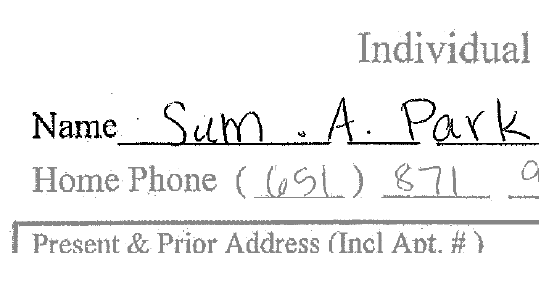 Individual
Name Sum . A. Park
Home Phone (651) 871 9
Present & Prior Address (Incl Apt. # )